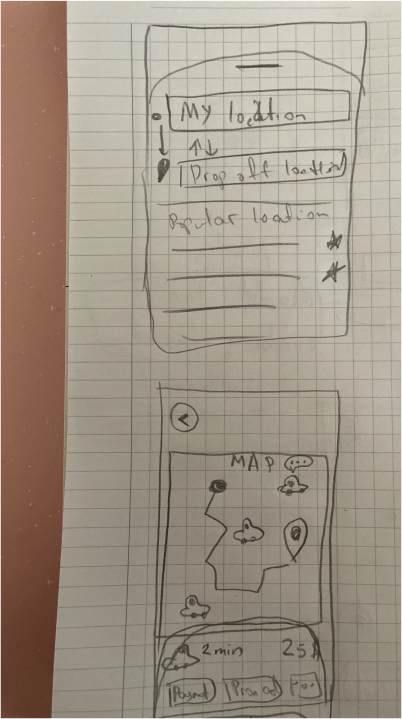 My location
Drop off location
Popular location
MAP
2 min 25$
Payment Promo